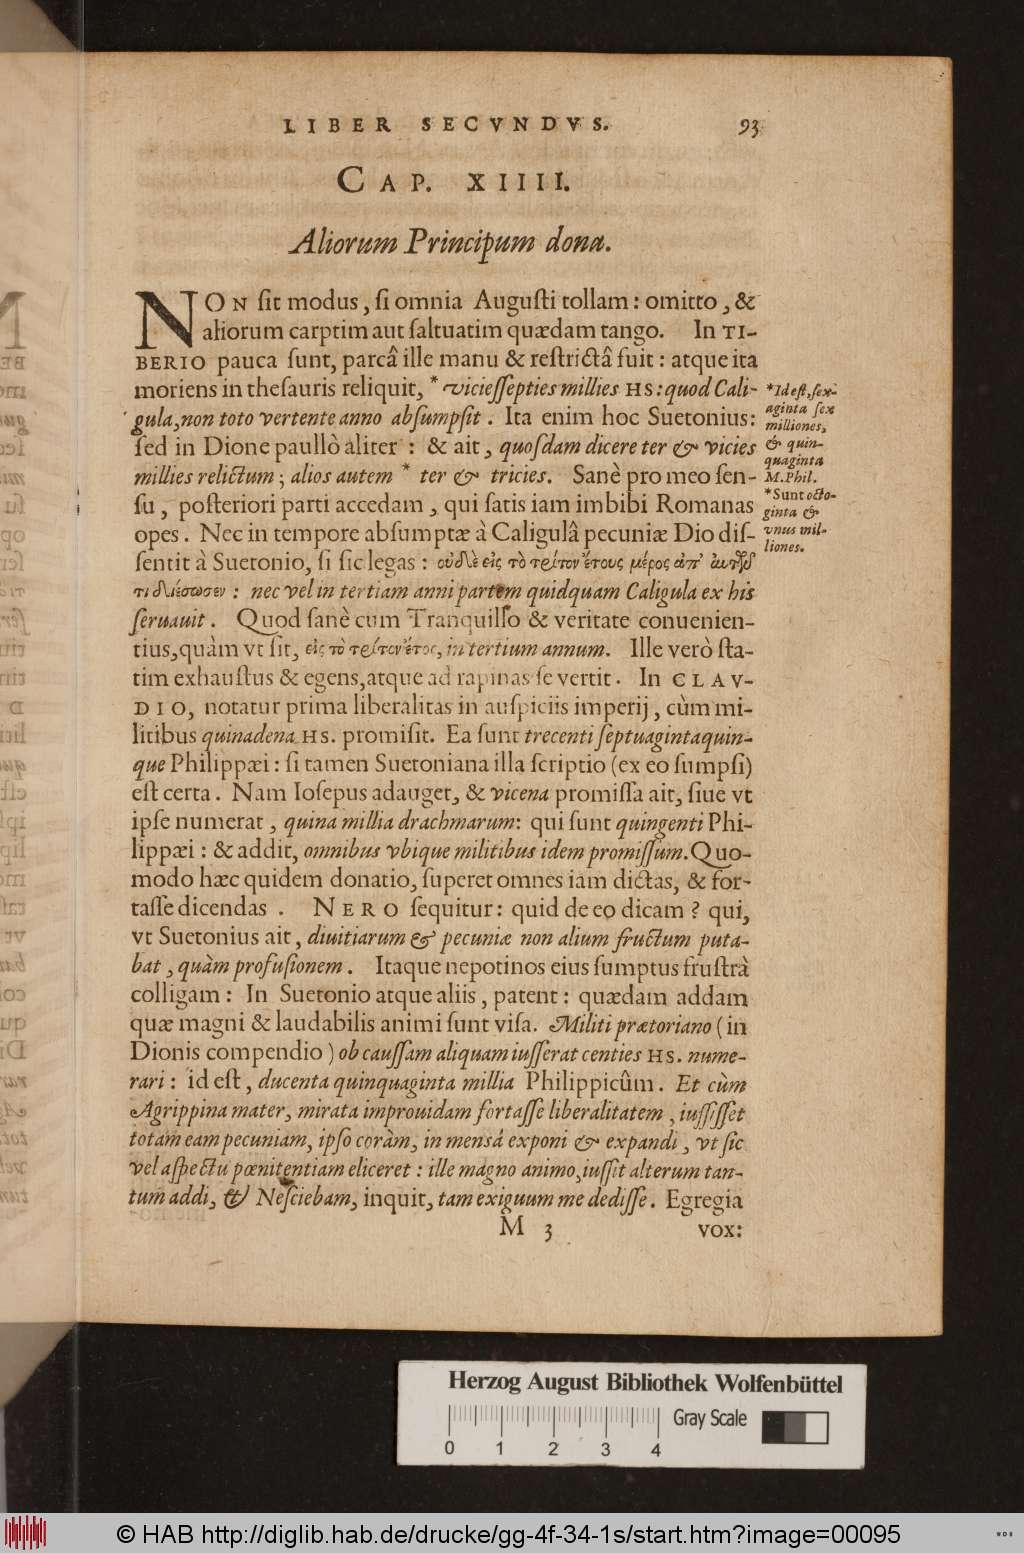 LIBER SECVNDVS. 93
CAP. XIIII.
Aliorum Principum dona.
NON ſit modus, ſi omnia Auguſti tollam: omitto, &
aliorum carptim aut ſaltuatim quædam tango. In TI-
BERIO pauca ſunt, parcâ ille manu & reſtrictâ fuit: atque ita
moriens in theſauris reliquit, * vicieſſepties millies HS: quod Cali-
gula, non toto vertente anno abſumpſit. Ita enim hoc Suetonius:
ſed in Dione paullò aliter: & ait, quoſdam dicere ter & vicies
millies relictum; alios autem * ter & tricies. Sanè pro meo ſen-
ſu, poſteriori parti accedam, qui ſatis iam imbibi Romanas
opes. Nec in tempore abſumptæ à Caligulâ pecuniæ Dio diſ-
ſentit à Suetonio, ſi ſic legas: οὐδὲ εἰς τὸ τρίτον ἔτους μέρος ἀπ' αὐτῶν
τι διέσωσεν: nec vel in tertiam anni partem quidquam Caligula ex his
ſeruauit. Quod ſanè cum Tranquillo & veritate conuenien-
tius, quàm vt ſit, εἰς τὸ τρίτον ἔτος, in tertium annum. Ille verò ſta-
tim exhauſtus & egens, atque ad rapinas ſe vertit. In CLAV-
DIO, notatur prima liberalitas in auſpiciis imperij, cùm mi-
litibus quinadena HS. promiſit. Ea ſunt trecenti ſeptuagintaquin-
que Philippæi: ſi tamen Suetoniana illa ſcriptio (ex eo ſumpſi)
eſt certa. Nam Ioſepus adauget, & vicena promiſſa ait, ſiue vt
ipſe numerat, quina millia drachmarum: qui ſunt quingenti Phi-
lippæi: & addit, omnibus vbique militibus idem promiſſum. Quo-
modo hæc quidem donatio, ſuperet omnes iam dictas, & for-
taſſe dicendas. NERO ſequitur: quid de eo dicam? qui,
vt Suetonius ait, diuitiarum & pecuniæ non alium fructum puta-
bat, quàm profuſionem. Itaque nepotinos eius ſumptus fruſtrà
colligam: In Suetonio atque aliis, patent: quædam addam
quæ magni & laudabilis animi ſunt viſa. Militi prætoriano (in
Dionis compendio) ob cauſſam aliquam iuſſerat centies HS. nume-
rari: id eſt, ducenta quinquaginta millia Philippicûm. Et cùm
Agrippina mater, mirata improuidam fortaſſe liberalitatem, iuſſiſſet
totam eam pecuniam, ipſo coràm, in mensâ exponi & expandi, vt ſic
vel aſpectu pœnitentiam eliceret: ille magno animo, iuſſit alterum tan-
tum addi, & Neſciebam, inquit, tam exiguum me dediſſe. Egregia
M 3 vox:
*Id eſt, ſex-
aginta ſex
milliones,
& quin-
quaginta
M. Phil.
*Sunt octo-
ginta &
vnus mil-
liones.
Herzog August Bibliothek Wolfenbüttel
Gray Scale
0 1 2 3 4
© HAB http://diglib.hab.de/drucke/gg-4f-34-1s/start.htm?image=00095